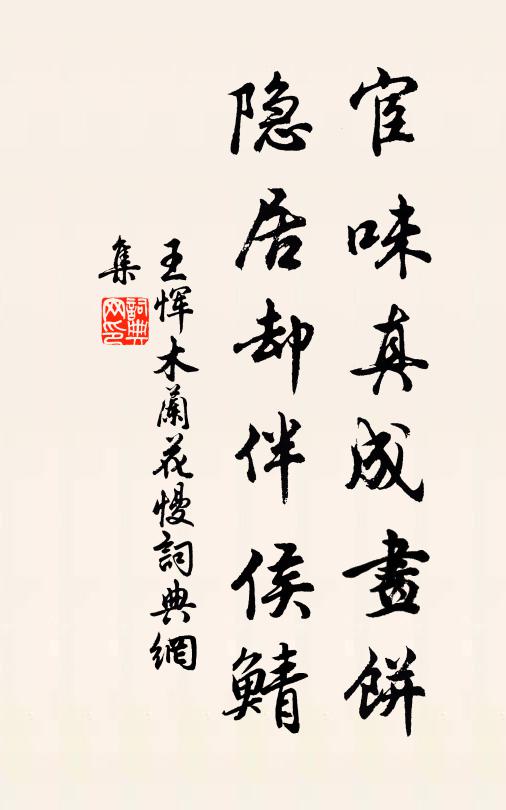 宦味真成畫餅
隐居却伴侯鯖
王惲木蘭花慢詞典網
集
詞典
网印